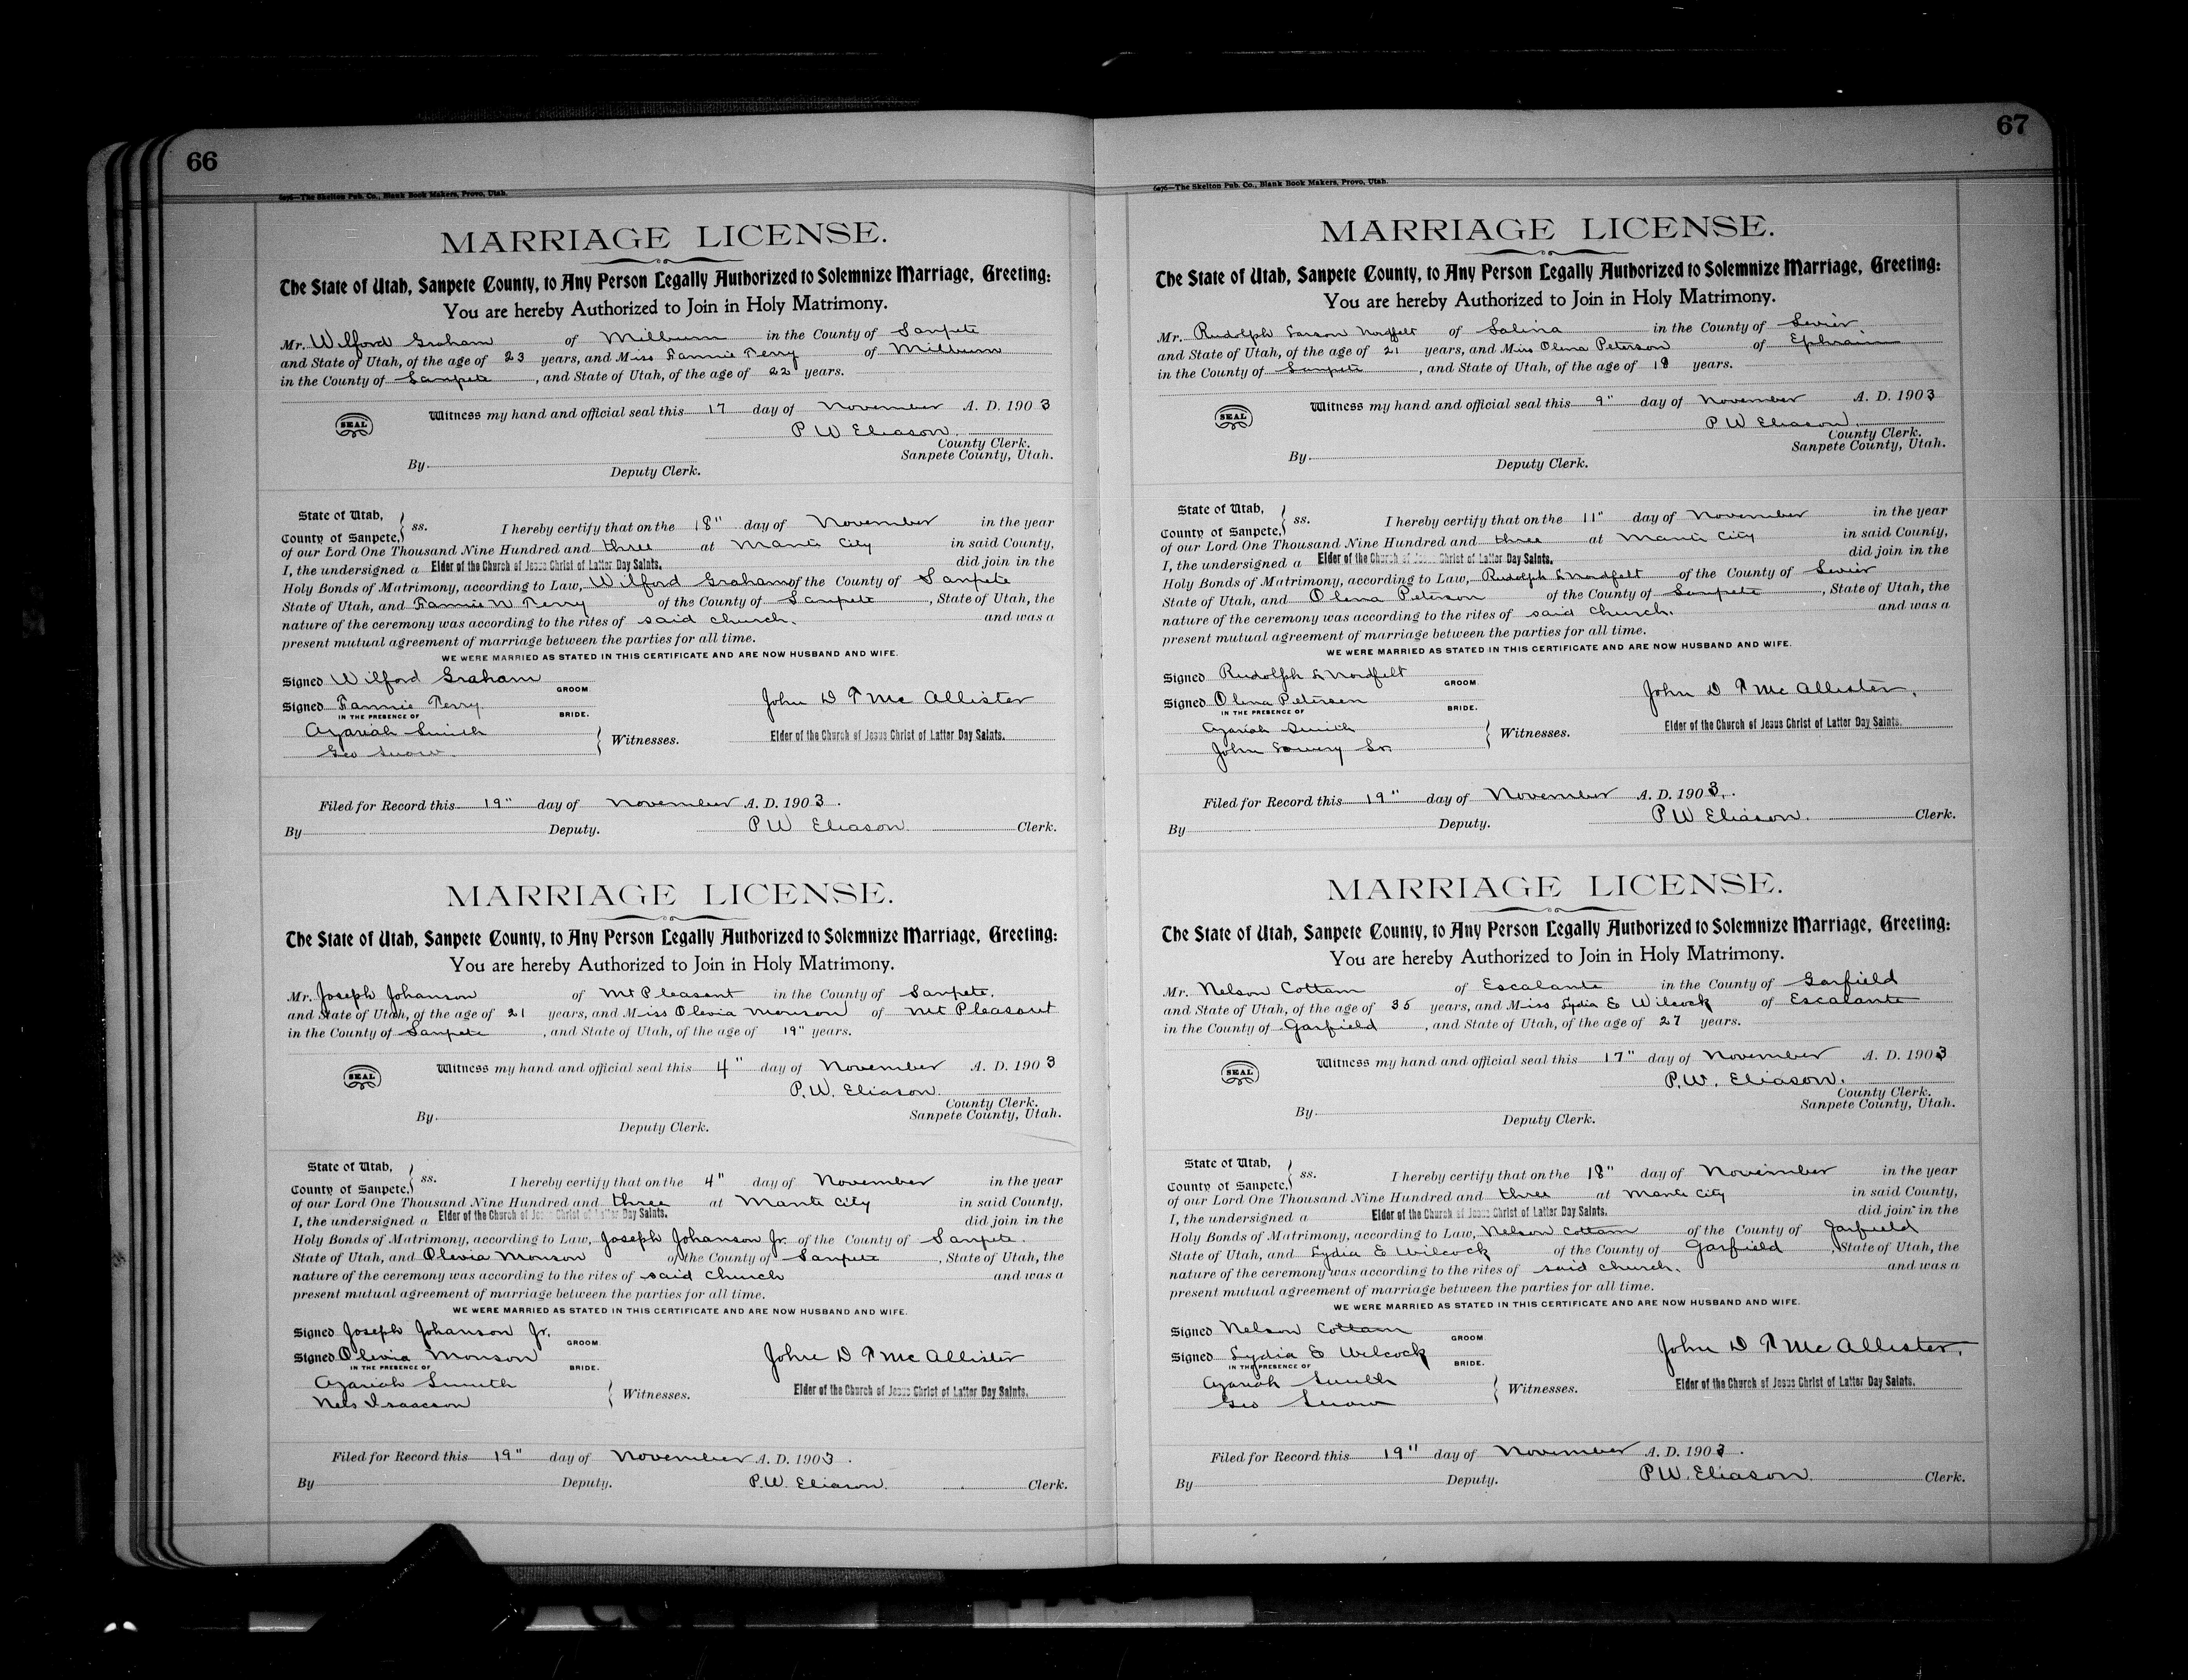 66
6076—The Skelton Pub. Co., Blank Book Makers, Provo, Utah.
MARRIAGE LICENSE.
The State of Utah, Sanpete County, to Any Person Legally Authorized to Solemnize Marriage, Greeting:
You are hereby Authorized to Join in Holy Matrimony.
Mr. Wilford Graham of Milburn in the County of Sanpete
and State of Utah, of the age of 23 years, and Miss Fannie Terry of Milburn
in the County of Sanpete, and State of Utah, of the age of 22 years.
SEAL Witness my hand and official seal this 17 day of November A. D. 1903
P W Eliason.
County Clerk.
Sanpete County, Utah.
By Deputy Clerk.
State of Utah,
County of Sanpete, ss. I hereby certify that on the 18" day of November in the year
of our Lord One Thousand Nine Hundred and three at Manti City in said County,
I, the undersigned a Elder of the Church of Jesus Christ of Latter Day Saints. did join in the
Holy Bonds of Matrimony, according to Law, Wilford Graham of the County of Sanpete
State of Utah, and Fannie W Terry of the County of Sanpete, State of Utah, the
nature of the ceremony was according to the rites of said church. and was a
present mutual agreement of marriage between the parties for all time.
WE WERE MARRIED AS STATED IN THIS CERTIFICATE AND ARE NOW HUSBAND AND WIFE.
Signed Wilford Graham GROOM.
Signed Fannie Terry BRIDE.
John D T McAllister
IN THE PRESENCE OF
Azariah Smith
Geo Snow. Witnesses.
Elder of the Church of Jesus Christ of Latter Day Saints.
Filed for Record this 19" day of November A. D. 1903.
By Deputy. P W Eliason. Clerk.
MARRIAGE LICENSE.
The State of Utah, Sanpete County, to Any Person Legally Authorized to Solemnize Marriage, Greeting:
You are hereby Authorized to Join in Holy Matrimony.
Mr. Joseph Johanson of Mt Pleasant in the County of Sanpete.
and State of Utah, of the age of 21 years, and Miss Olevia Monson of Mt Pleasant
in the County of Sanpete, and State of Utah, of the age of 19" years.
SEAL Witness my hand and official seal this 4" day of November A. D. 1903
P. W. Eliason.
County Clerk.
Sanpete County, Utah.
By Deputy Clerk.
State of Utah,
County of Sanpete, ss. I hereby certify that on the 4" day of November in the year
of our Lord One Thousand Nine Hundred and three at Manti City in said County,
I, the undersigned a Elder of the Church of Jesus Christ of Latter Day Saints. did join in the
Holy Bonds of Matrimony, according to Law, Joseph Johanson Jr. of the County of Sanpete.
State of Utah, and Olevia Monson of the County of Sanpete, State of Utah, the
nature of the ceremony was according to the rites of said church and was a
present mutual agreement of marriage between the parties for all time.
WE WERE MARRIED AS STATED IN THIS CERTIFICATE AND ARE NOW HUSBAND AND WIFE.
Signed Joseph Johanson Jr. GROOM.
Signed Olevia Monson BRIDE.
John D T McAllister
IN THE PRESENCE OF
Azariah Smith
Nels Isaacson Witnesses.
Elder of the Church of Jesus Christ of Latter Day Saints.
Filed for Record this 19" day of November A. D. 1903.
By Deputy. P. W. Eliason. Clerk.
67
6076—The Skelton Pub. Co., Blank Book Makers, Provo, Utah.
MARRIAGE LICENSE.
The State of Utah, Sanpete County, to Any Person Legally Authorized to Solemnize Marriage, Greeting:
You are hereby Authorized to Join in Holy Matrimony.
Mr. Rudolph Larson Nordfelt of Salina in the County of Sevier.
and State of Utah, of the age of 21 years, and Miss Olena Peterson of Ephraim
in the County of Sanpete, and State of Utah, of the age of 18 years.
SEAL Witness my hand and official seal this 9" day of November A. D. 1903
P W Eliason.
County Clerk.
Sanpete County, Utah.
By Deputy Clerk.
State of Utah,
County of Sanpete, ss. I hereby certify that on the 11" day of November in the year
of our Lord One Thousand Nine Hundred and three at Manti City in said County,
I, the undersigned a Elder of the Church of Jesus Christ of Latter Day Saints. did join in the
Holy Bonds of Matrimony, according to Law, Rudolph L Nordfelt of the County of Sevier
State of Utah, and Olena Peterson of the County of Sanpete, State of Utah, the
nature of the ceremony was according to the rites of said church. and was a
present mutual agreement of marriage between the parties for all time.
WE WERE MARRIED AS STATED IN THIS CERTIFICATE AND ARE NOW HUSBAND AND WIFE.
Signed Rudolph L Nordfelt GROOM.
Signed Olena Petersen BRIDE.
John D T McAllister.
IN THE PRESENCE OF
Azariah Smith
John Lowry Sr. Witnesses.
Elder of the Church of Jesus Christ of Latter Day Saints.
Filed for Record this 19" day of November A. D. 1903.
By Deputy. P W Eliason. Clerk.
MARRIAGE LICENSE.
The State of Utah, Sanpete County, to Any Person Legally Authorized to Solemnize Marriage, Greeting:
You are hereby Authorized to Join in Holy Matrimony.
Mr. Nelson Cottam of Escalante in the County of Garfield
and State of Utah, of the age of 35 years, and Miss Lydia E Wilcock of Escalante
in the County of Garfield, and State of Utah, of the age of 27 years.
SEAL Witness my hand and official seal this 17" day of November A. D. 1903
P. W. Eliason.
County Clerk.
Sanpete County, Utah.
By Deputy Clerk.
State of Utah,
County of Sanpete, ss. I hereby certify that on the 18" day of November in the year
of our Lord One Thousand Nine Hundred and three at Manti City in said County,
I, the undersigned a Elder of the Church of Jesus Christ of Latter Day Saints. did join in the
Holy Bonds of Matrimony, according to Law, Nelson Cottam of the County of Garfield
State of Utah, and Lydia E Wilcock of the County of Garfield, State of Utah, the
nature of the ceremony was according to the rites of said church. and was a
present mutual agreement of marriage between the parties for all time.
WE WERE MARRIED AS STATED IN THIS CERTIFICATE AND ARE NOW HUSBAND AND WIFE.
Signed Nelson Cottam GROOM.
Signed Lydia E Wilcock BRIDE.
John D T McAllister.
IN THE PRESENCE OF
Azariah Smith
Geo Snow Witnesses.
Elder of the Church of Jesus Christ of Latter Day Saints.
Filed for Record this 19" day of November A. D. 1903.
By Deputy. P W. Eliason. Clerk.